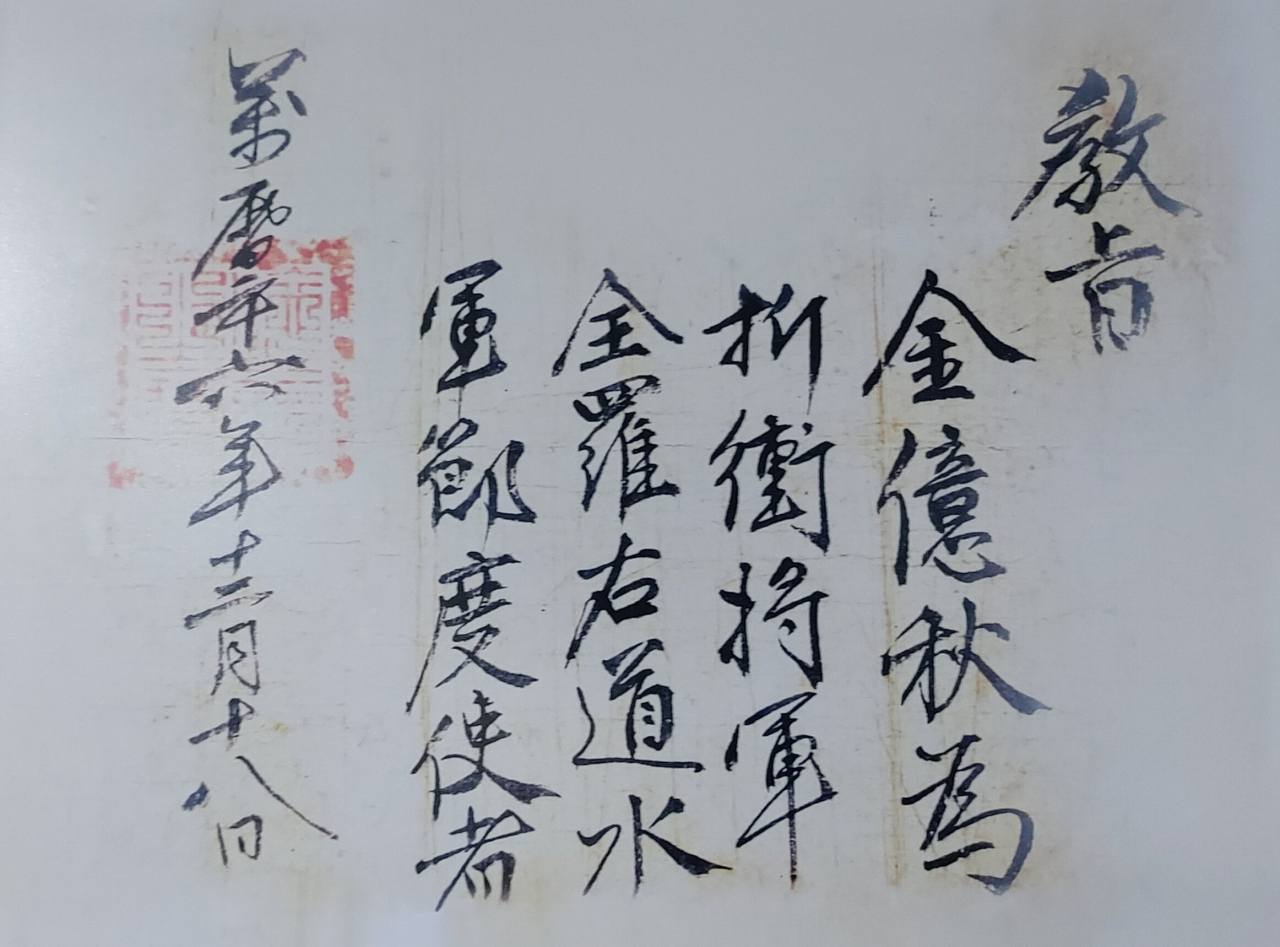 教旨
金億秋為
折衝將軍
全羅右道水
軍節度使者
萬曆年六年十二月十八日